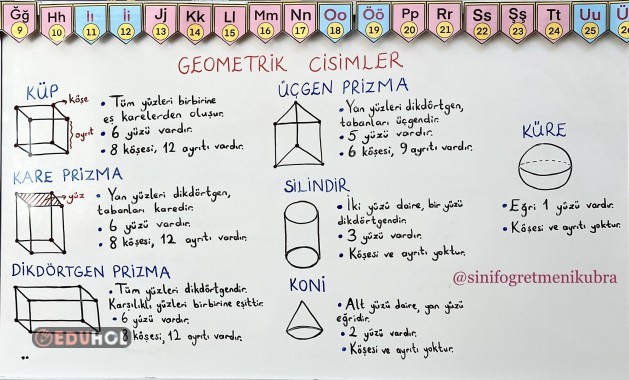 Ğğ Hh Iı İi Jj Kk Ll Mm Nn Oo Öö Pp Rr Ss Şş Tt Uu Ü
9 10 11 12 13 14 15 16 17 18 19 20 21 22 23 24 25
GEOMETRİK CİSİMLER
KÜP
köşe
ayrıt
• Tüm yüzleri birbirine
eş karelerden oluşur.
• 6 yüzü vardır.
• 8 köşesi, 12 ayrıtı vardır.
KARE PRİZMA
yüz
• Yan yüzleri dikdörtgen,
tabanları karedir.
• 6 yüzü vardır.
• 8 köşesi, 12 ayrıtı vardır.
DİKDÖRTGEN PRİZMA
• Tüm yüzleri dikdörtgendir.
Karşılıklı yüzleri birbirine eşittir.
• 6 yüzü vardır.
8 köşesi, 12 ayrıtı vardır.
EDUHOL
ÜÇGEN PRİZMA
• Yan yüzleri dikdörtgen,
tabanları üçgendir.
• 5 yüzü vardır.
• 6 köşesi, 9 ayrıtı vardır.
SİLİNDİR
• İki yüzü daire, bir yüzü
dikdörtgendir.
• 3 yüzü vardır.
• Köşesi ve ayrıtı yoktur.
KONİ
• Alt yüzü daire, yan yüzü
eğridir.
• 2 yüzü vardır.
• Köşesi ve ayrıtı yoktur.
KÜRE
• Eğri 1 yüzü vardır.
• Köşesi ve ayrıtı yoktur.
@sinifogretmenikubra